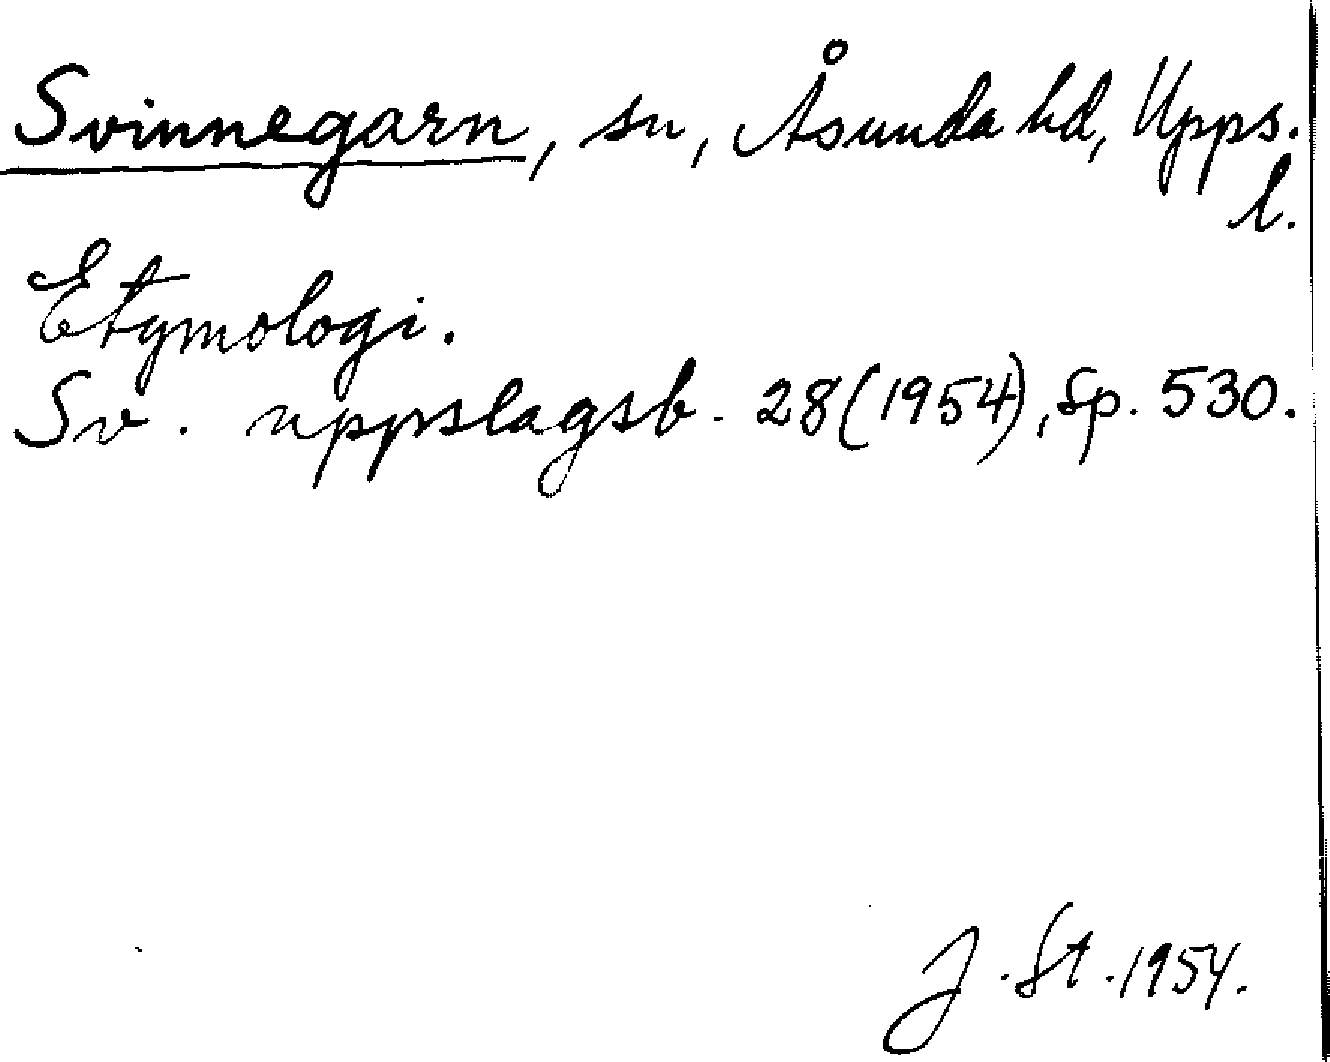 Svinnegarn, sn, Åsunda hd, Upps.
l.
Etymologi.
Sv. uppslagsb. 28 (1954), sp. 530.
J. St. 1954.